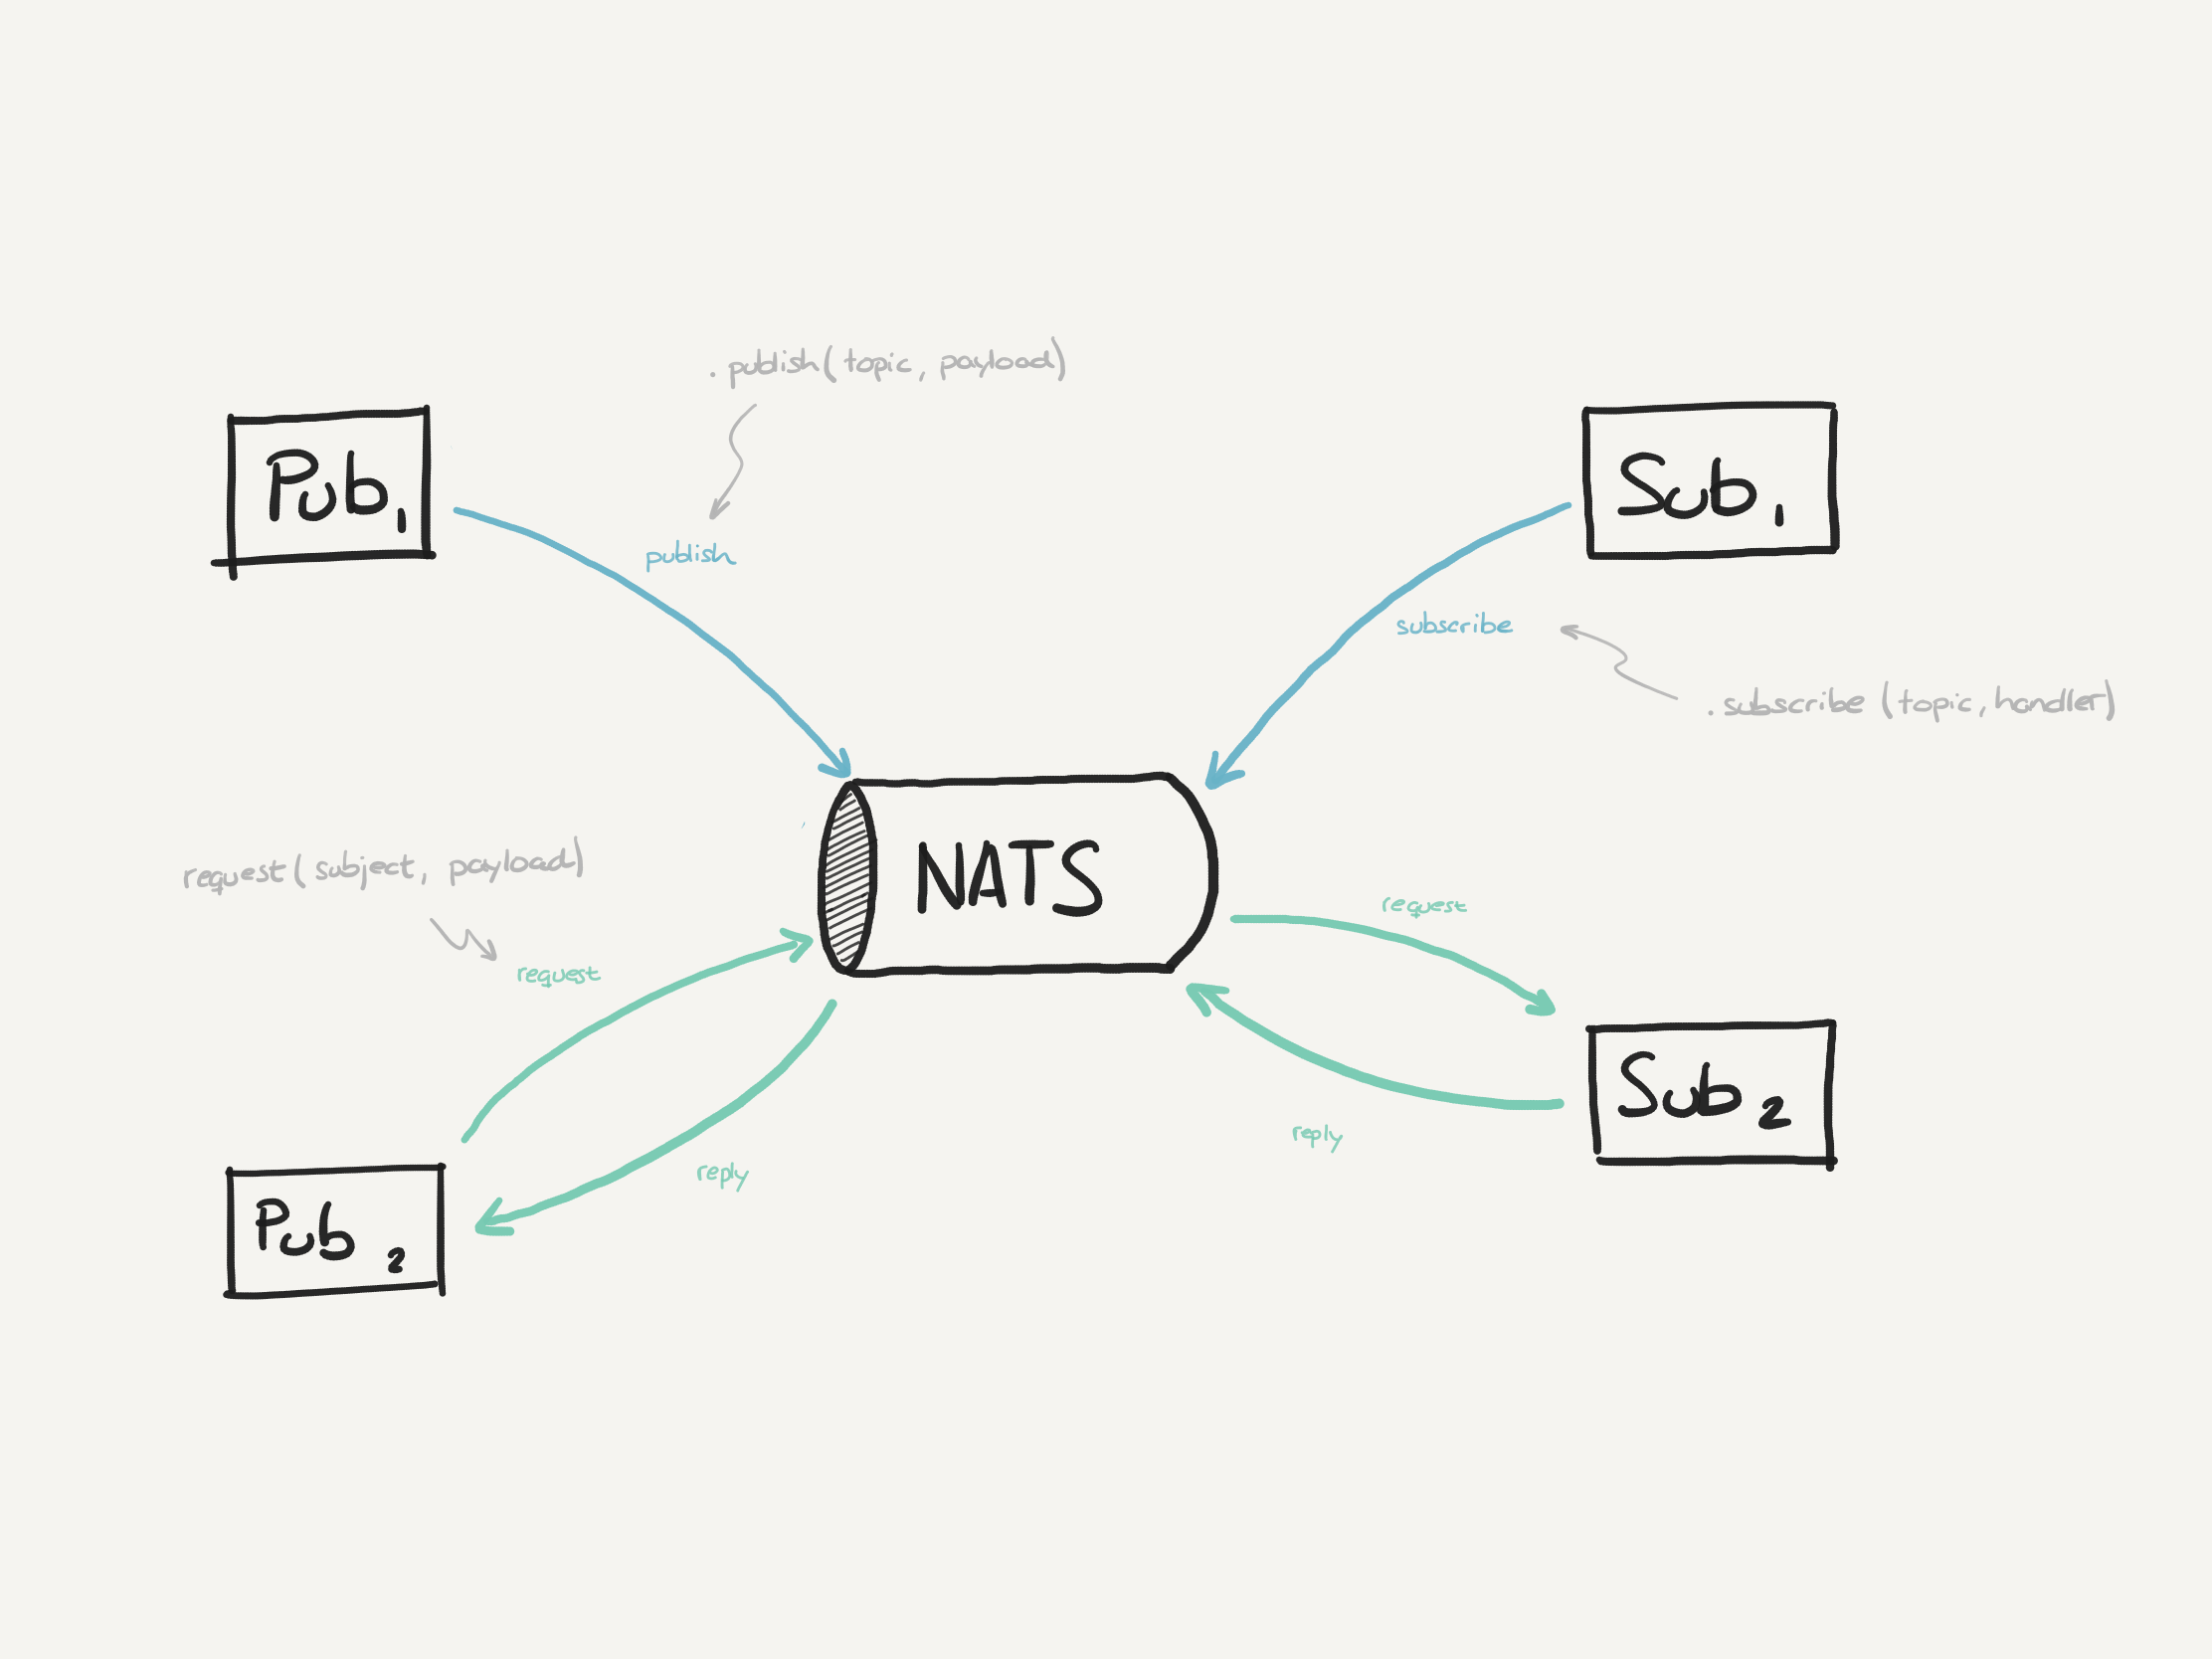 . publish(topic, payload)
Pub1
Sub1
publish
subscribe
. subscribe (topic, handler)
NATS
request(subject, payload)
request
request
Sub2
reply
reply
Pub2